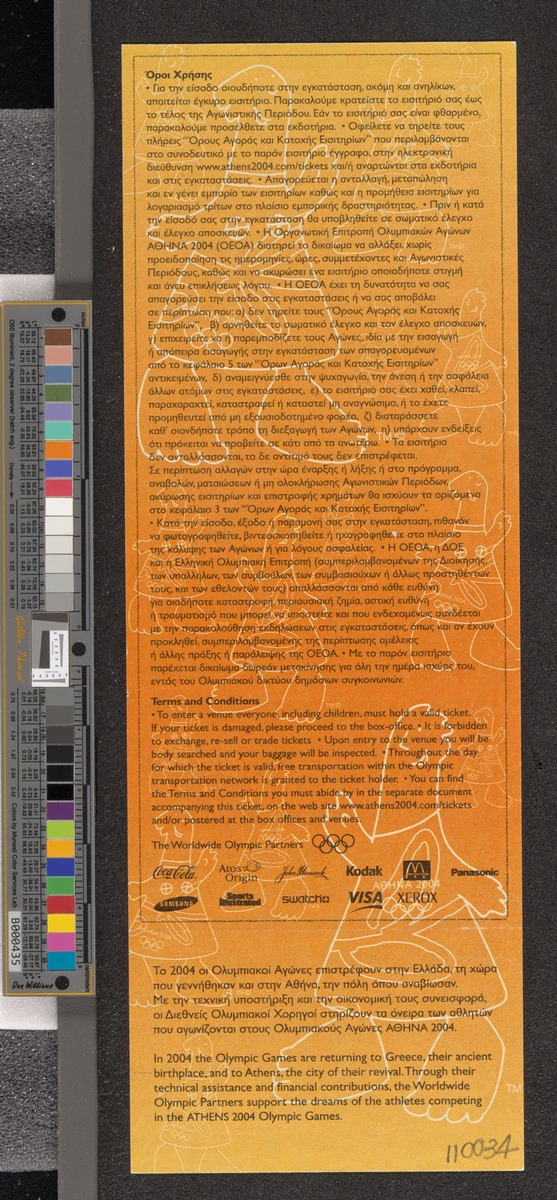 Όροι Χρήσης
• Για την είσοδο οιουδήποτε στην εγκατάσταση, ακόμη και ανηλίκων,
απαιτείται έγκυρο εισιτήριο. Παρακαλούμε κρατείστε το εισιτήριό σας έως
το τέλος της Αγωνιστικής Περιόδου. Εάν το εισιτήριό σας είναι φθαρμένο,
παρακαλούμε προσέλθετε στα εκδοτήρια. • Οφείλετε να τηρείτε τους
πλήρεις "Όρους Αγοράς και Κατοχής Εισιτηρίων" που περιλαμβάνονται
στο συνοδευτικό με το παρόν εισιτήριο έγγραφο, στην ηλεκτρονική
διεύθυνση www.athens2004.com/tickets και/ή αναρτώνται στα εκδοτήρια
και στις εγκαταστάσεις. • Απαγορεύεται η ανταλλαγή, μεταπώληση
και εν γένει εμπορία των εισιτηρίων καθώς και η προμήθεια εισιτηρίων για
λογαριασμό τρίτων στο πλαίσιο εμπορικής δραστηριότητας. • Πριν ή κατά
την είσοδό σας στην εγκατάσταση θα υποβληθείτε σε σωματικό έλεγχο
και έλεγχο αποσκευών. • Η Οργανωτική Επιτροπή Ολυμπιακών Αγώνων
ΑΘΗΝΑ 2004 (ΟΕΟΑ) διατηρεί το δικαίωμα να αλλάξει, χωρίς
προειδοποίηση τις ημερομηνίες, ώρες, συμμετέχοντες και Αγωνιστικές
Περιόδους, καθώς και να ακυρώσει ένα εισιτήριο οποιαδήποτε στιγμή
και άνευ επικλήσεως λόγου. • Η ΟΕΟΑ έχει τη δυνατότητα να σας
απαγορεύσει την είσοδο στις εγκαταστάσεις ή να σας αποβάλει
σε περίπτωση που: α) δεν τηρείτε τους "Όρους Αγοράς και Κατοχής
Εισιτηρίων", β) αρνηθείτε το σωματικό έλεγχο και τον έλεγχο αποσκευών,
γ) επιχειρείτε να παρεμποδίζετε τους Αγώνες, ιδία με την εισαγωγή
ή απόπειρα εισαγωγής στην εγκατάσταση των απαγορευμένων
από το κεφάλαιο 5 των "Όρων Αγοράς και Κατοχής Εισιτηρίων"
αντικειμένων, δ) αναμειγνύεσθε στην ψυχαγωγία, την άνεση ή την ασφάλεια
άλλων ατόμων στις εγκαταστάσεις, ε) το εισιτήριό σας έχει χαθεί, κλαπεί,
παραχαραχτεί, καταστραφεί ή καταστεί μη αναγνώσιμο, ή το έχετε
προμηθευτεί από μη εξουσιοδοτημένο φορέα, ζ) διαταράσσετε
καθ' οιονδήποτε τρόπο τη διεξαγωγή των Αγώνων, η) υπάρχουν ενδείξεις
ότι πρόκειται να προβείτε σε κάτι από τα ανωτέρω. • Τα εισιτήρια
δεν ανταλλάσσονται, το δε αντίτιμό τους δεν επιστρέφεται.
Σε περίπτωση αλλαγών στην ώρα έναρξης ή λήξης ή στο πρόγραμμα,
αναβολών, ματαιώσεων ή μη ολοκλήρωσης Αγωνιστικών Περιόδων,
ακύρωσης εισιτηρίων και επιστροφής χρημάτων θα ισχύουν τα οριζόμενα
στο κεφάλαιο 3 των "Όρων Αγοράς και Κατοχής Εισιτηρίων".
• Κατά την είσοδο, έξοδο ή παραμονή σας στην εγκατάσταση, πιθανόν
να φωτογραφηθείτε, βιντεοσκοπηθείτε ή ηχογραφηθείτε στο πλαίσιο
της κάλυψης των Αγώνων ή για λόγους ασφαλείας. • Η ΟΕΟΑ, η ΔΟΕ
και η Ελληνική Ολυμπιακή Επιτροπή (συμπεριλαμβανομένων της Διοίκησης,
των υπαλλήλων, των συμβούλων, των συμβασιούχων ή άλλως προστηθέντων
τους, και των εθελοντών τους) απαλλάσσονται από κάθε ευθύνη
για οιαδήποτε καταστροφή, περιουσιακή ζημία, αστική ευθύνη
ή τραυματισμό που μπορεί να υποστείτε και που ενδεχομένως συνδέεται
με την παρακολούθηση εκδηλώσεων στις εγκαταστάσεις, όπως και αν έχουν
προκληθεί, συμπεριλαμβανομένης της περίπτωσης αμέλειας
ή άλλης πράξης ή παράλειψης της ΟΕΟΑ. • Με το παρόν εισιτήριο
παρέχεται δικαίωμα δωρεάν μετακίνησης για όλη την ημέρα ισχύος του,
εντός του Ολυμπιακού δικτύου δημόσιων συγκοινωνιών.
Terms and Conditions
• To enter a venue everyone, including children, must hold a valid ticket.
If your ticket is damaged, please proceed to the box-office. • It is forbidden
to exchange, re-sell or trade tickets • Upon entry to the venue you will be
body searched and your baggage will be inspected. • Throughout the day
for which the ticket is valid, free transportation within the Olympic
transportation network is granted to the ticket holder. • You can find
the Terms and Conditions you must abide by in the separate document
accompanying this ticket, on the web site www.athens2004.com/tickets
and/or posted at the box offices and venues.
The Worldwide Olympic Partners
Coca-Cola Atos Origin John Hancock Kodak M Panasonic
ΑΘΗΝΑ 2004
SAMSUNG Sports Illustrated swatch VISA XEROX
Το 2004 οι Ολυμπιακοί Αγώνες επιστρέφουν στην Ελλάδα, τη χώρα
που γεννήθηκαν και στην Αθήνα, την πόλη όπου αναβίωσαν.
Με την τεχνική υποστήριξη και την οικονομική τους συνεισφορά,
οι Διεθνείς Ολυμπιακοί Χορηγοί στηρίζουν τα όνειρα των αθλητών
που αγωνίζονται στους Ολυμπιακούς Αγώνες ΑΘΗΝΑ 2004.
In 2004 the Olympic Games are returning to Greece, their ancient
birthplace, and to Athens, the city of their revival. Through their
technical assistance and financial contributions, the Worldwide
Olympic Partners support the dreams of the athletes competing
in the ATHENS 2004 Olympic Games.
TM
110034
D50 Illuminant, 2 degree observer
Density
Golden Thread
Colors by Munsell Color Services Lab
B000435
Don Williams